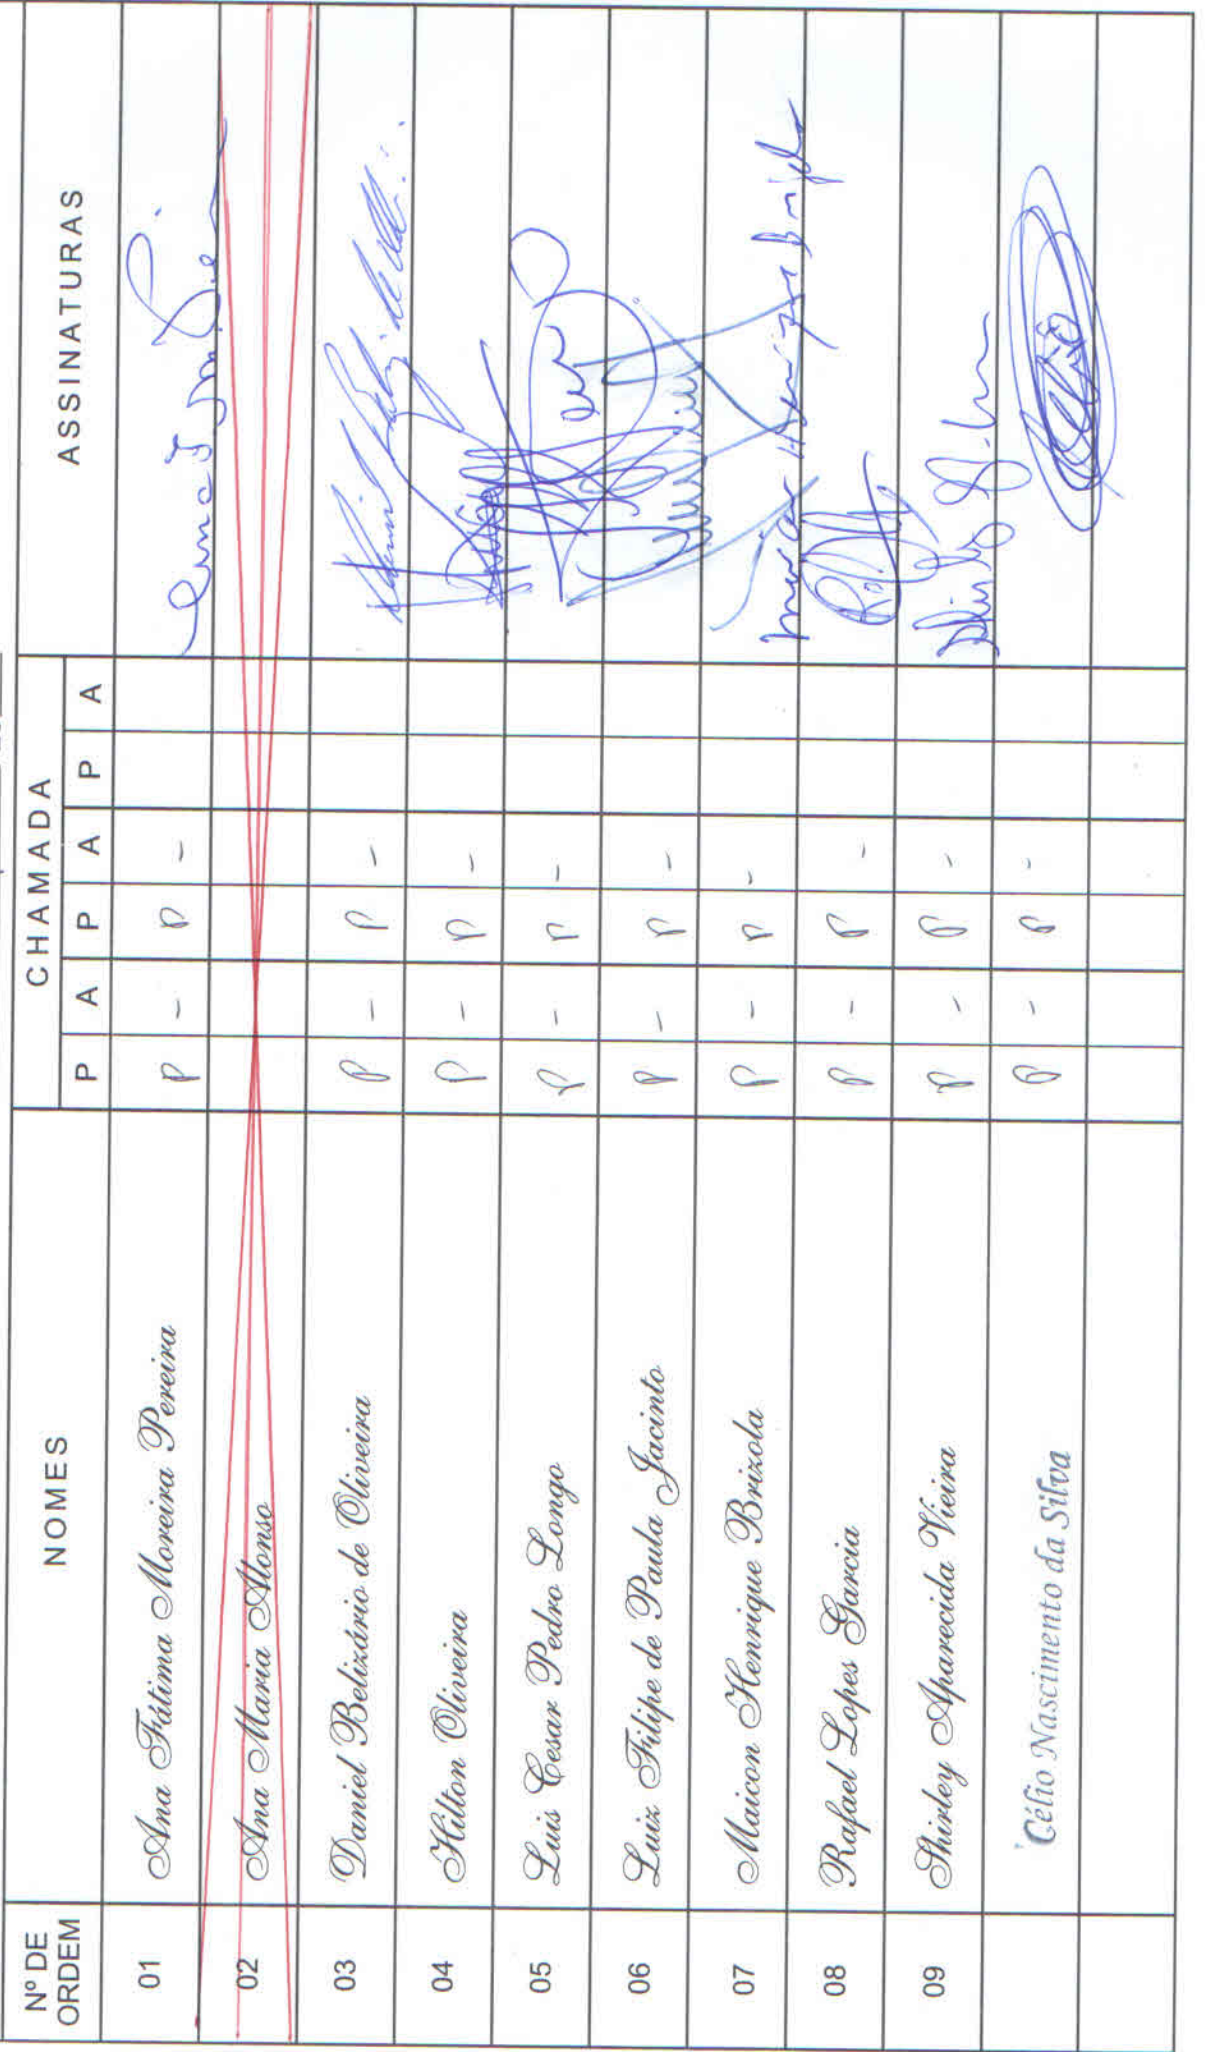 Nº DE ORDEM NOMES CHAMADA ASSINATURAS
P A P A P A
01 Ana Fátima Moreira Pereira P - P -
02 Ana Maria Alonso
03 Daniel Belizário de Oliveira P - P -
04 Hilton Oliveira P - P -
05 Luis Cesar Pedro Longo P - P -
06 Luiz Filipe de Paula Jacinto P - P -
07 Maicon Henrique Brizola P - P -
08 Rafael Lopes Garcia P - P -
09 Shirley Aparecida Vieira P - P -
Célio Nascimento da Silva P - P -